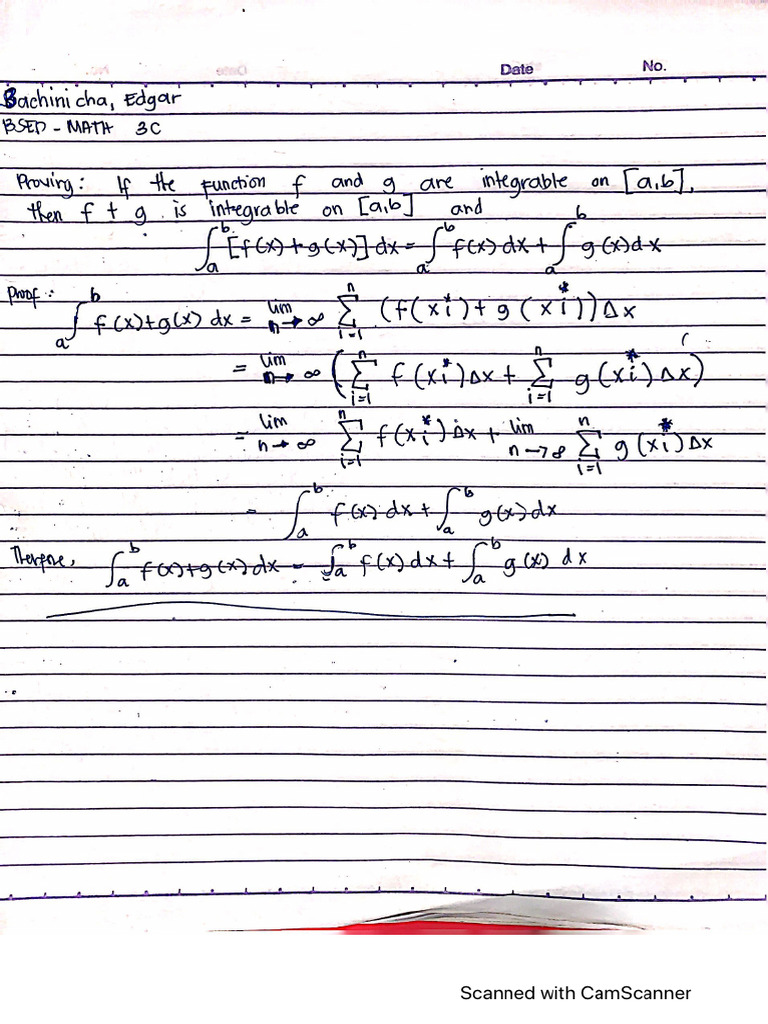 Date No.
Bachinicha, Edgar
BSED - MATH 3C
Proving: If the function f and g are integrable on [a,b],
then f + g is integrable on [a,b] and
∫_a^b [f(x)+g(x)] dx = ∫_a^b f(x) dx + ∫_a^b g(x) dx
Proof:
∫_a^b f(x)+g(x) dx = lim n→∞ Σ_{i=1}^n (f(xi*)+g(xi*))Δx
= lim n→∞ (Σ_{i=1}^n f(xi*)Δx + Σ_{i=1}^n g(xi*)Δx)
= lim n→∞ Σ_{i=1}^n f(xi*)Δx + lim n→∞ Σ_{i=1}^n g(xi*)Δx
= ∫_a^b f(x) dx + ∫_a^b g(x) dx
Therefore, ∫_a^b f(x)+g(x) dx = ∫_a^b f(x) dx + ∫_a^b g(x) dx
Scanned with CamScanner